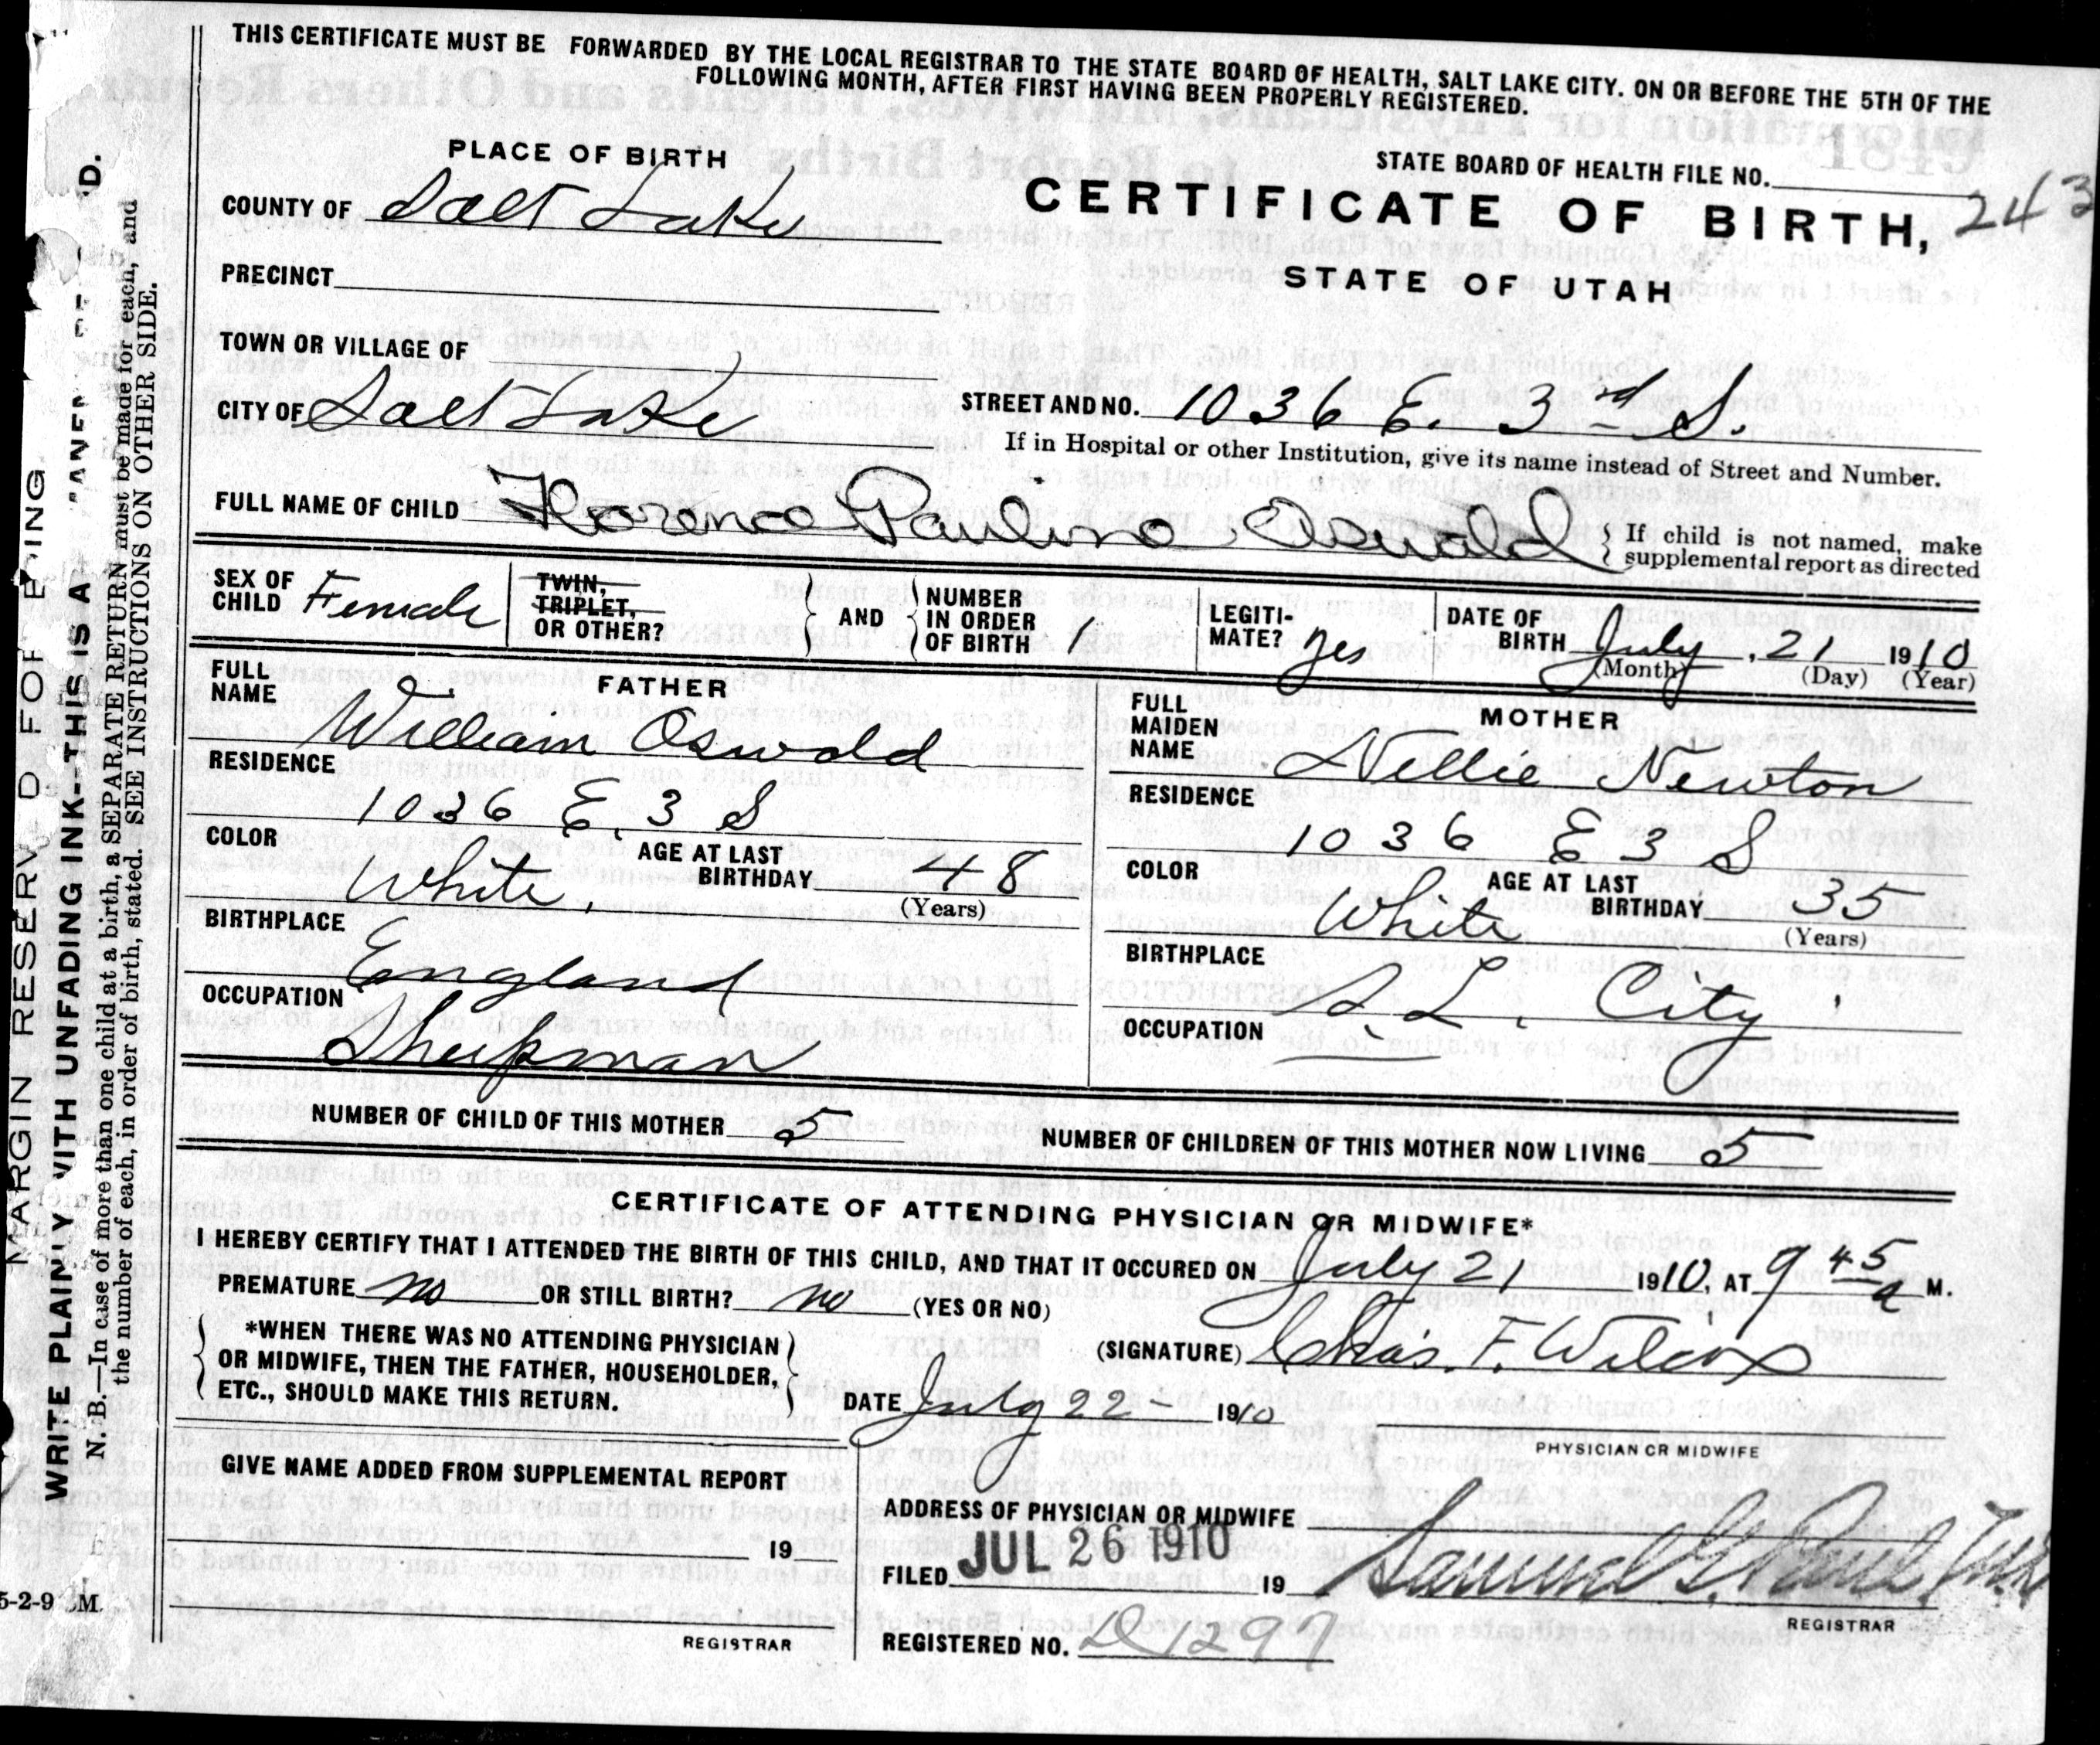 THIS CERTIFICATE MUST BE FORWARDED BY THE LOCAL REGISTRAR TO THE STATE BOARD OF HEALTH, SALT LAKE CITY. ON OR BEFORE THE 5TH OF THE
FOLLOWING MONTH, AFTER FIRST HAVING BEEN PROPERLY REGISTERED.
PLACE OF BIRTH
STATE BOARD OF HEALTH FILE NO.
243
COUNTY OF Salt Lake
CERTIFICATE OF BIRTH,
PRECINCT
STATE OF UTAH
TOWN OR VILLAGE OF
CITY OF Salt Lake
STREET AND NO. 1036 E. 3rd S.
If in Hospital or other Institution, give its name instead of Street and Number.
FULL NAME OF CHILD Florence Pauline Oswald
If child is not named, make
supplemental report as directed
SEX OF CHILD Female
TWIN, TRIPLET, OR OTHER?
AND
NUMBER IN ORDER OF BIRTH 1
LEGITI-MATE? yes
DATE OF BIRTH July 21 1910
(Month) (Day) (Year)
FATHER
FULL NAME William Oswald
RESIDENCE
1036 E. 3 S
COLOR White.
AGE AT LAST BIRTHDAY 48
(Years)
BIRTHPLACE
England
OCCUPATION
Sheepman
MOTHER
FULL MAIDEN NAME Nellie Newton
RESIDENCE
1036 E 3 S
COLOR White
AGE AT LAST BIRTHDAY 35
(Years)
BIRTHPLACE
S. L. City
OCCUPATION
NUMBER OF CHILD OF THIS MOTHER 5
NUMBER OF CHILDREN OF THIS MOTHER NOW LIVING 5
CERTIFICATE OF ATTENDING PHYSICIAN OR MIDWIFE*
I HEREBY CERTIFY THAT I ATTENDED THE BIRTH OF THIS CHILD, AND THAT IT OCCURED ON July 21 1910, AT 9 45 a M.
PREMATURE no OR STILL BIRTH? no (YES OR NO)
*WHEN THERE WAS NO ATTENDING PHYSICIAN
OR MIDWIFE, THEN THE FATHER, HOUSEHOLDER,
ETC., SHOULD MAKE THIS RETURN.
(SIGNATURE) Chas. F. Wilcox
DATE July 22 - 1910
PHYSICIAN OR MIDWIFE
GIVE NAME ADDED FROM SUPPLEMENTAL REPORT
19
REGISTRAR
ADDRESS OF PHYSICIAN OR MIDWIFE
FILED JUL 26 1910 19
Samuel G. Paul
REGISTRAR
REGISTERED NO. D 1297
MARGIN RESERV D FOR
WRITE PLAINLY WITH UNFADING INK--THIS IS A
N. B.—In case of more than one child at a birth, a SEPARATE RETURN must be made for each, and
the number of each, in order of birth, stated. SEE INSTRUCTIONS ON OTHER SIDE.
5-2-9 M.